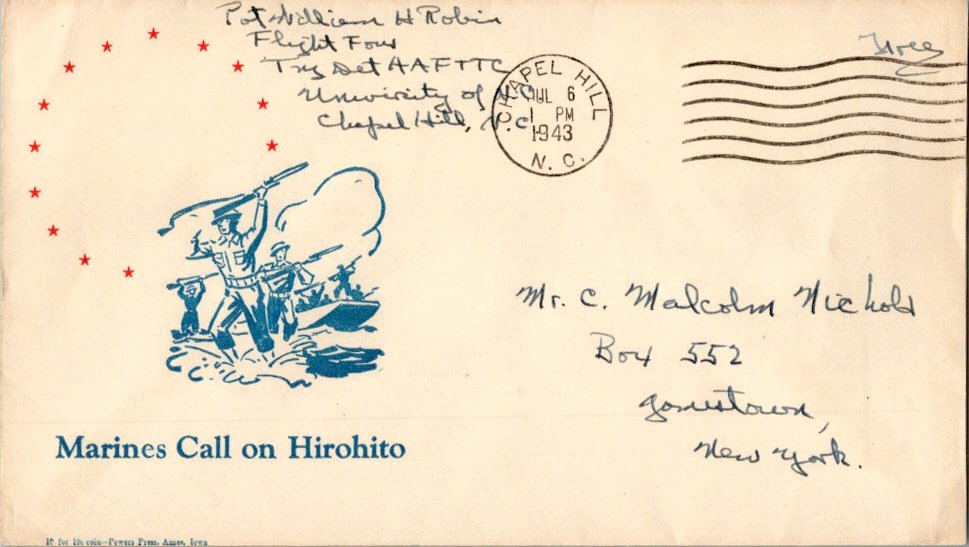 Pvt William H Robin
Flight Four
Tng Det AAFTTC
University of N C
Chapel Hill, N.C.
CHAPEL HILL
JUL 6
1 PM
1943
N. C.
Free
Mr. C. Malcolm Nichold
Box 552
Jamestown,
New York.
Marines Call on Hirohito
for 10c coin—Powers Press, Ames, Iowa